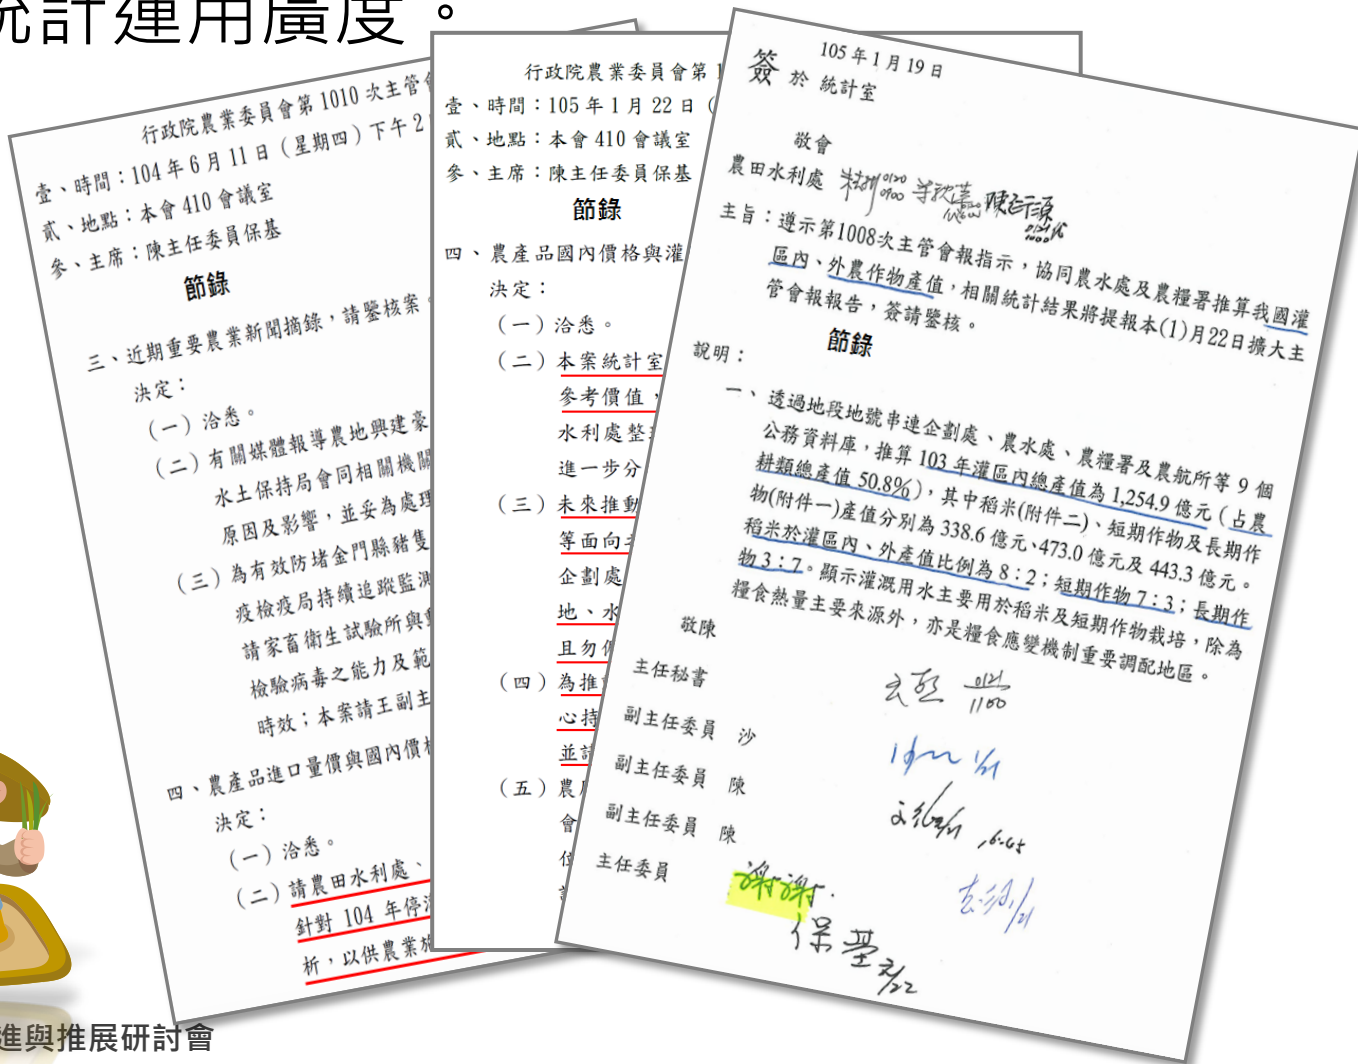 統計運用廣度。
行政院農業委員會第 1010 次主管會
壹、時間：104 年 6 月 11 日（星期四）下午 2
貳、地點：本會 410 會議室
參、主席：陳主任委員保基
節錄
三、近期重要農業新聞摘錄，請鑒核案。
決定：
（一）洽悉。
（二）有關媒體報導農地興建豪
水土保持局會同相關機關
原因及影響，並妥為處理
（三）為有效防堵金門縣豬隻
疫檢疫局持續追蹤監測
請家畜衛生試驗所與
檢驗病毒之能力及範
時效；本案請王副主
四、農產品進口量價與國內價格
決定：
（一）洽悉。
（二）請農田水利處、
針對 104 年停灌
析，以供農業施
行政院農業委員會第 1
壹、時間：105 年 1 月 22 日（
貳、地點：本會 410 會議室
參、主席：陳主任委員保基
節錄
四、農產品國內價格與灌
決定：
（一）洽悉。
（二）本案統計室
參考價值，
水利處整
進一步分
（三）未來推動
等面向
企劃處
地、水
且勿
（四）為推
心持
並請
（五）農
會
位
105 年 1 月 19 日
簽 於 統計室
敬會
農田水利處
主旨：遵示第1008次主管會報指示，協同農水處及農糧署推算我國灌
區內、外農作物產值，相關統計結果將提報本(1)月22日擴大主
管會報報告，簽請鑒核。
節錄
說明：
一、透過地段地號串連企劃處、農水處、農糧署及農航所等 9 個
公務資料庫，推算 103 年灌區內總產值為 1,254.9 億元（占農
耕類總產值 50.8%），其中稻米(附件二)、短期作物及長期作
物(附件一)產值分別為 338.6 億元、473.0 億元及 443.3 億元。
稻米於灌區內、外產值比例為 8：2；短期作物 7：3；長期作
物 3：7。顯示灌溉用水主要用於稻米及短期作物栽培，除為
糧食熱量主要來源外，亦是糧食應變機制重要調配地區。
敬陳
主任秘書
0121
1100
副主任委員 沙
副主任委員 陳
副主任委員 陳
主任委員
謝謝.
保基 1/22
進與推展研討會